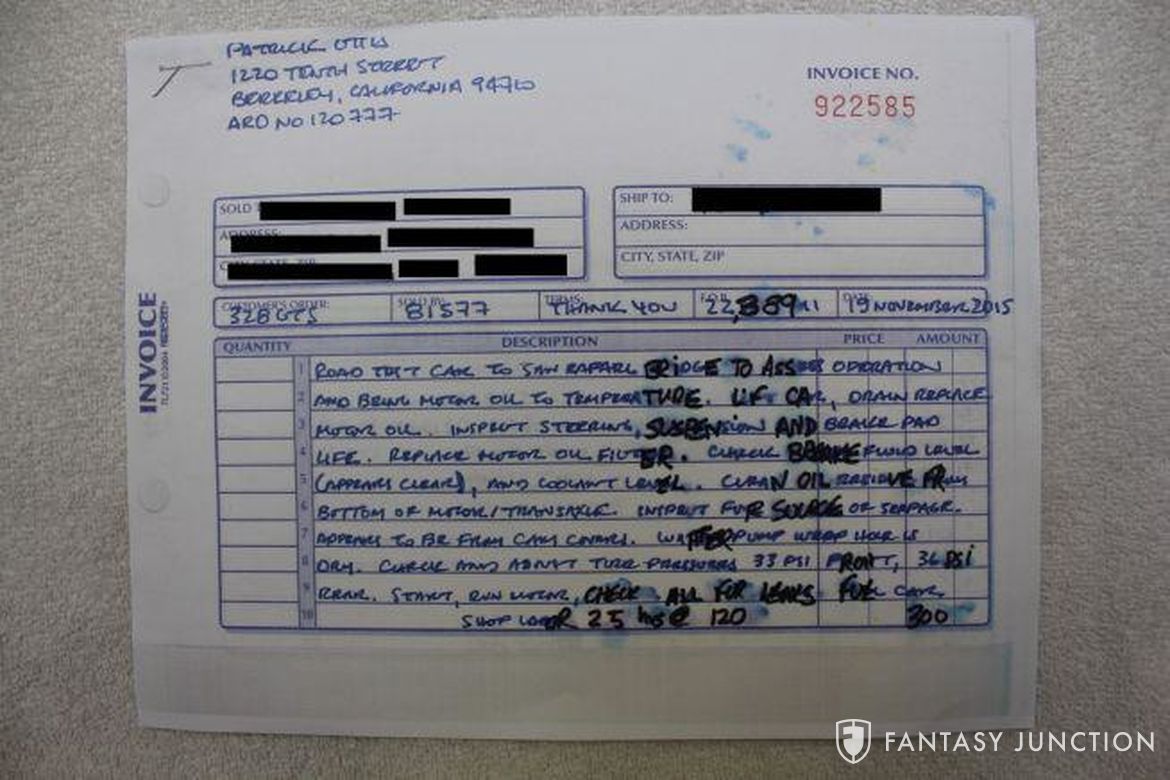 PATRICK OTTIS
1220 TENTH STREET
BERKELEY, CALIFORNIA 94710
ARD NO 120777
INVOICE NO.
922585
SOLD
SHIP TO:
ADDRESS:
ADDRESS:
CITY, STATE, ZIP
CITY, STATE, ZIP
CUSTOMER'S ORDER: SOLD BY: TERMS: F.O.B. DATE
328 GTS 81577 THANK YOU 22,889 19 NOVEMBER 2015
INVOICE
QUANTITY DESCRIPTION PRICE AMOUNT
1 ROAD TEST CAR TO SAN RAFAEL BRIDGE TO ASSESS OPERATION
2 AND BRING MOTOR OIL TO TEMPERATURE. LIFT CAR, DRAIN REPLACE
3 MOTOR OIL. INSPECT STEERING, SUSPENSION AND BRAKE PAD
4 LIFE. REPLACE MOTOR OIL FILTER. CHECK BRAKE FLUID LEVEL
5 (APPEARS CLEAR), AND COOLANT LEVEL. CLEAN OIL RESIDUE FROM
6 BOTTOM OF MOTOR/TRANSAXLE. INSPECT FOR SOURCE OF SEEPAGE.
7 APPEARS TO BE FROM CAM COVERS. WATER PUMP WEEP HOLE IS
8 DRY. CHECK AND ADJUST TIRE PRESSURES 33 PSI FRONT, 36 PSI
9 REAR. START, RUN MOTOR, CHECK ALL FOR LEAKS FUEL CAR,
10 SHOP LABOR 2.5 hrs @ 120 300
FANTASY JUNCTION